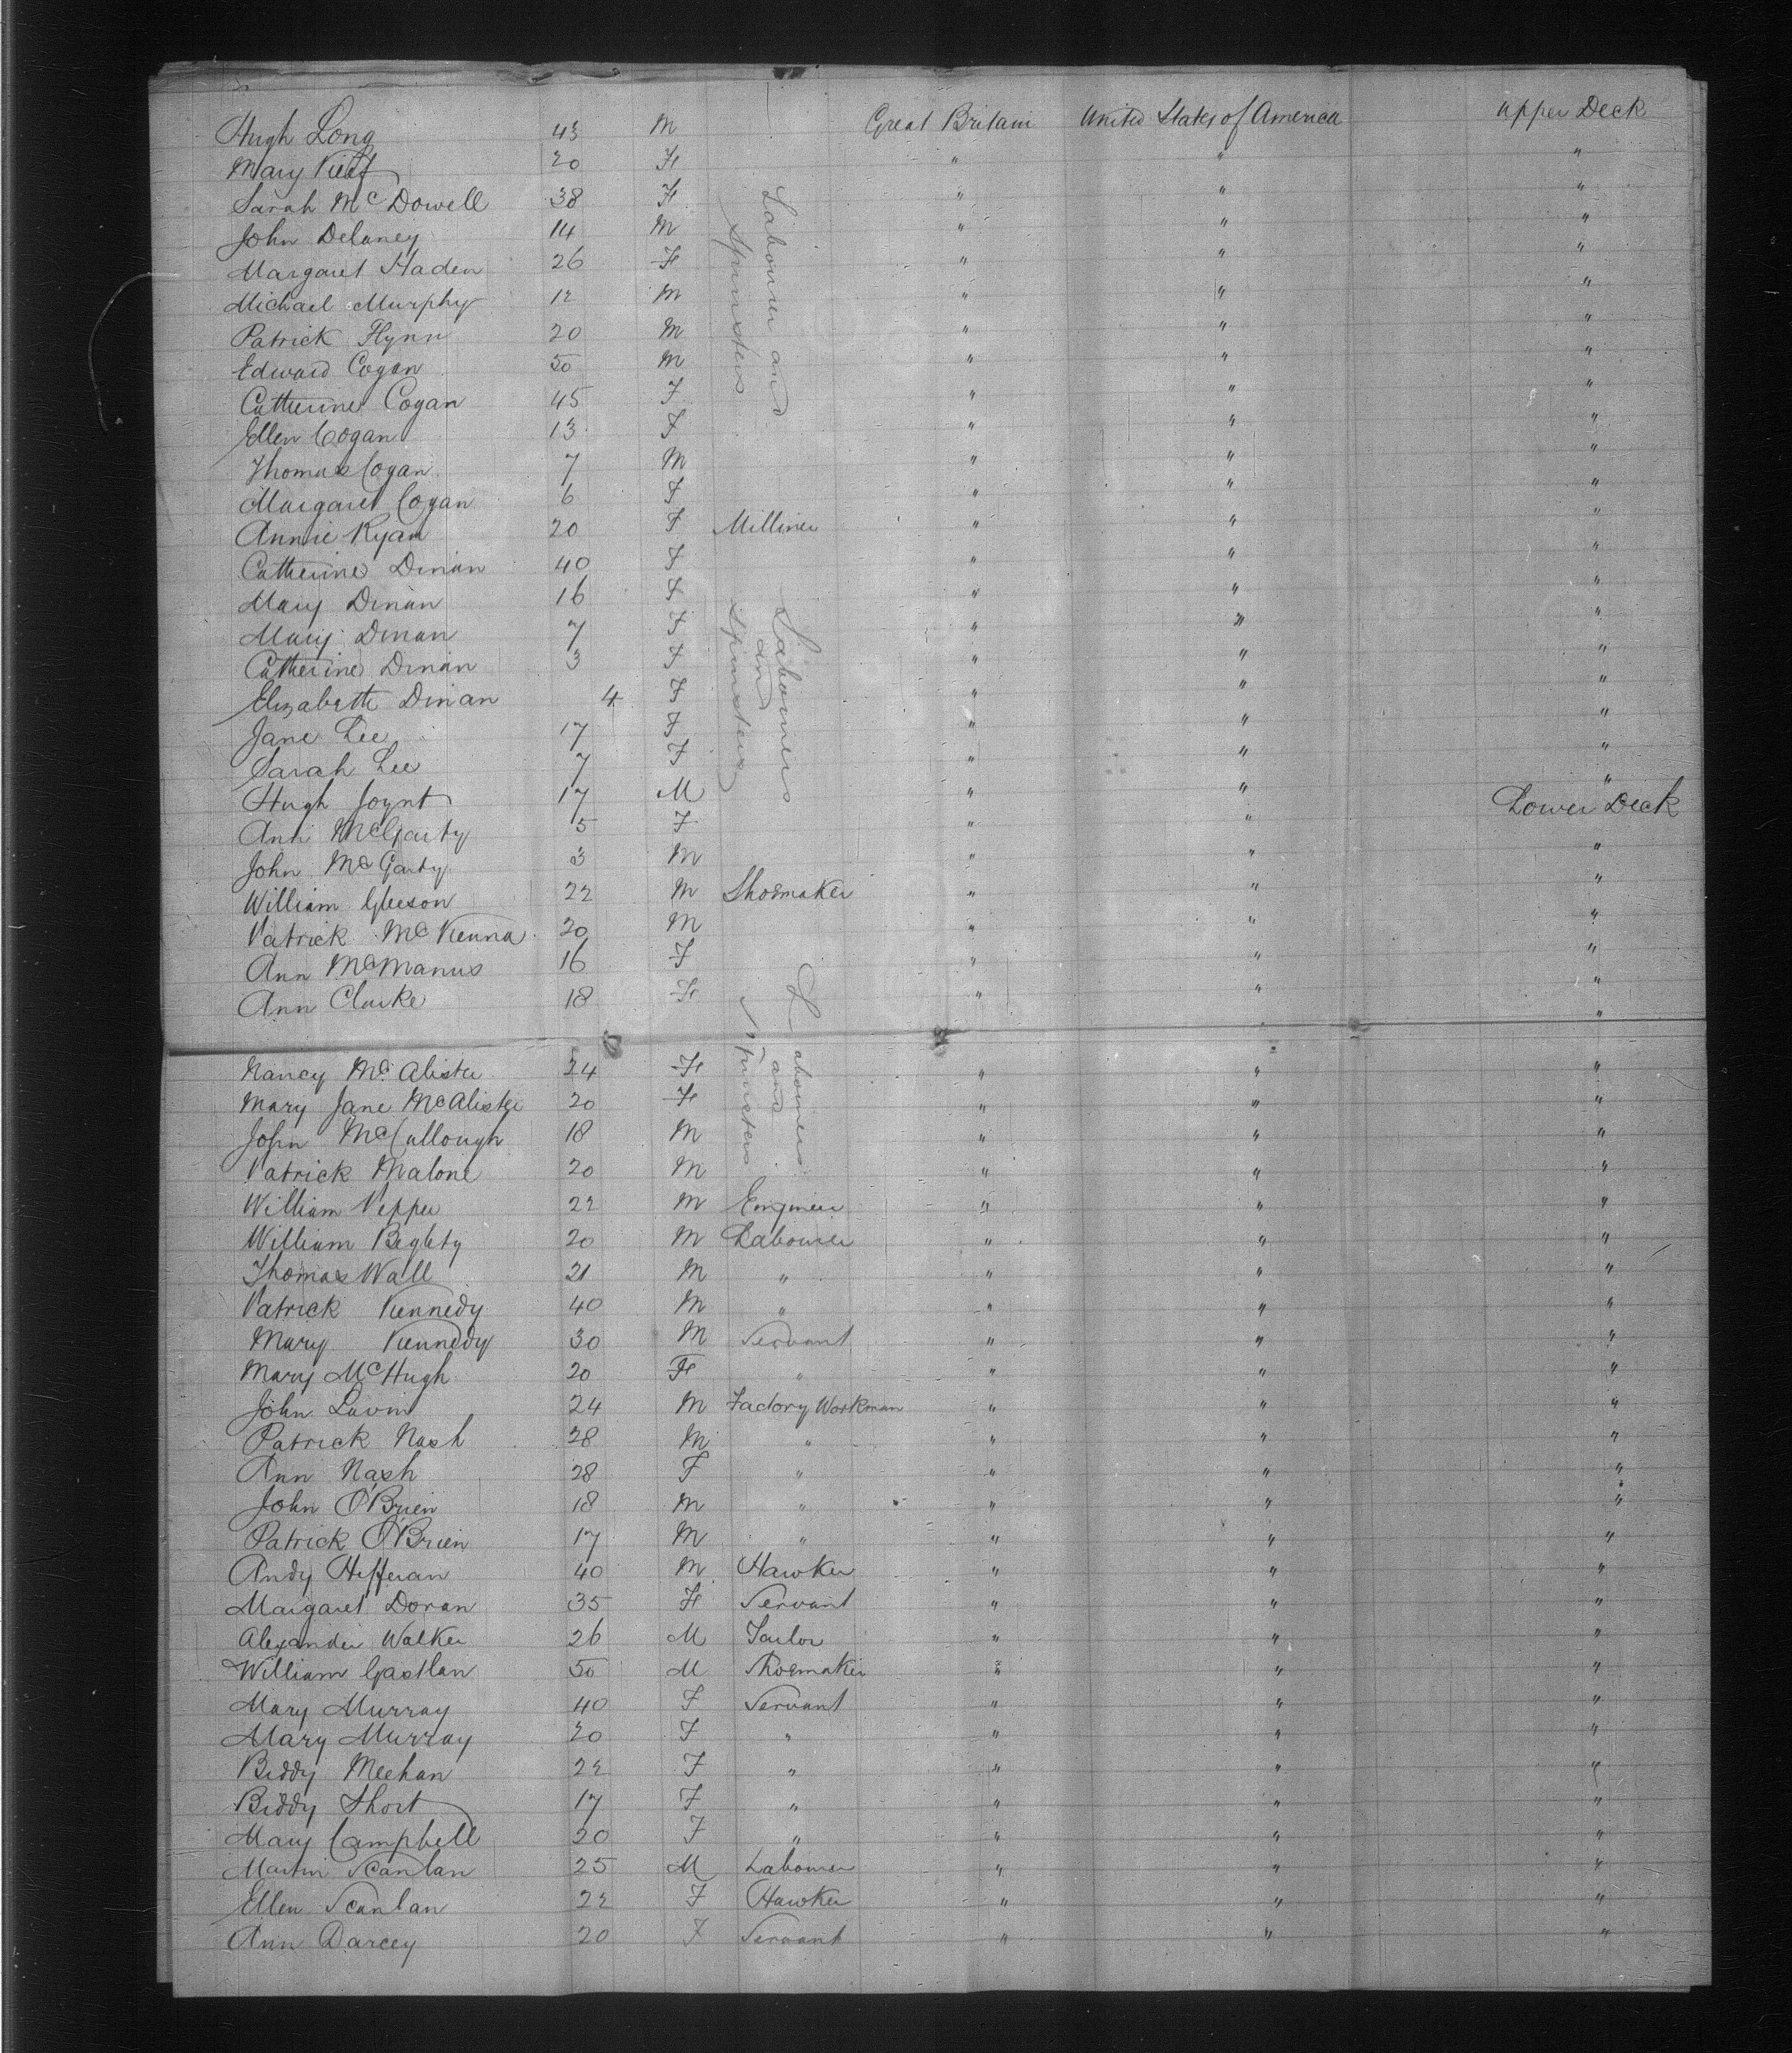 Hugh Long 43 M Great Britain United States of America Upper Deck
Mary Kieff 20 F " " "
Sarah McDowell 38 F " " "
John Delaney 14 M " " "
Margaret Haden 26 F " " "
Michael Murphy 12 M " " "
Patrick Flynn 20 M " " "
Edward Cogan 50 M " " "
Catherine Cogan 45 F " " "
Ellen Cogan 13 F " " "
Thomas Cogan 7 M " " "
Margaret Cogan 6 F " " "
Labourer and
Spinsters
Annie Ryan 20 F Milliner " " "
Catherine Dinan 40 F " " "
Mary Dinan 16 F " " "
Mary Dinan 7 F " " "
Catherine Dinan 3 F " " "
Elizabeth Dinan 4 F " " "
Jane Lee 17 F " " "
Sarah Lee 7 F " " "
Labourers
and
Spinsters
Hugh Joynt 17 M " " Lower Deck
Ann McGarty 5 F " " "
John McGarty 3 M " " "
William Gleeson 22 M Shoemaker " " "
Patrick McKenna 20 M " " "
Ann McManus 16 F " " "
Ann Clarke 18 F " " "
Nancy McAlister 24 F " " "
Mary Jane McAlister 20 F " " "
John McCullough 18 M " " "
Patrick Malone 20 M " " "
Labourers
and
Spinsters
William Pepper 22 M Engineer " " "
William Beglety 20 M Labourer " " "
Thomas Wall 21 M " " " "
Patrick Kennedy 40 M " " " "
Mary Kennedy 30 M Servant " " "
Mary McHugh 20 F " " " "
John Lavin 24 M Factory Workman " " "
Patrick Nash 28 M " " " "
Ann Nash 28 F " " " "
John O'Brien 18 M " " " "
Patrick O'Brien 17 M " " " "
Andy Hefferan 40 M Hawker " " "
Margaret Doran 35 F Servant " " "
Alexander Walker 26 M Tailor " " "
William Gastlan 50 M Shoemaker " " "
Mary Murray 40 F Servant " " "
Mary Murray 20 F " " " "
Biddy Meehan 22 F " " " "
Biddy Short 17 F " " " "
Mary Campbell 20 F " " " "
Martin Scanlan 25 M Labourer " " "
Ellen Scanlan 22 F Hawker " " "
Ann Darcey 20 F Servant " " "